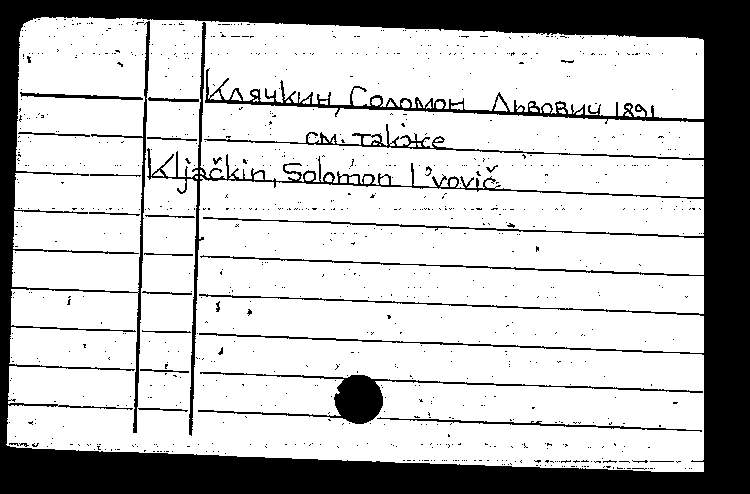 Клячкин, Соломон Львович, 1891
см. также
Kljačkin, Solomon L'vovič